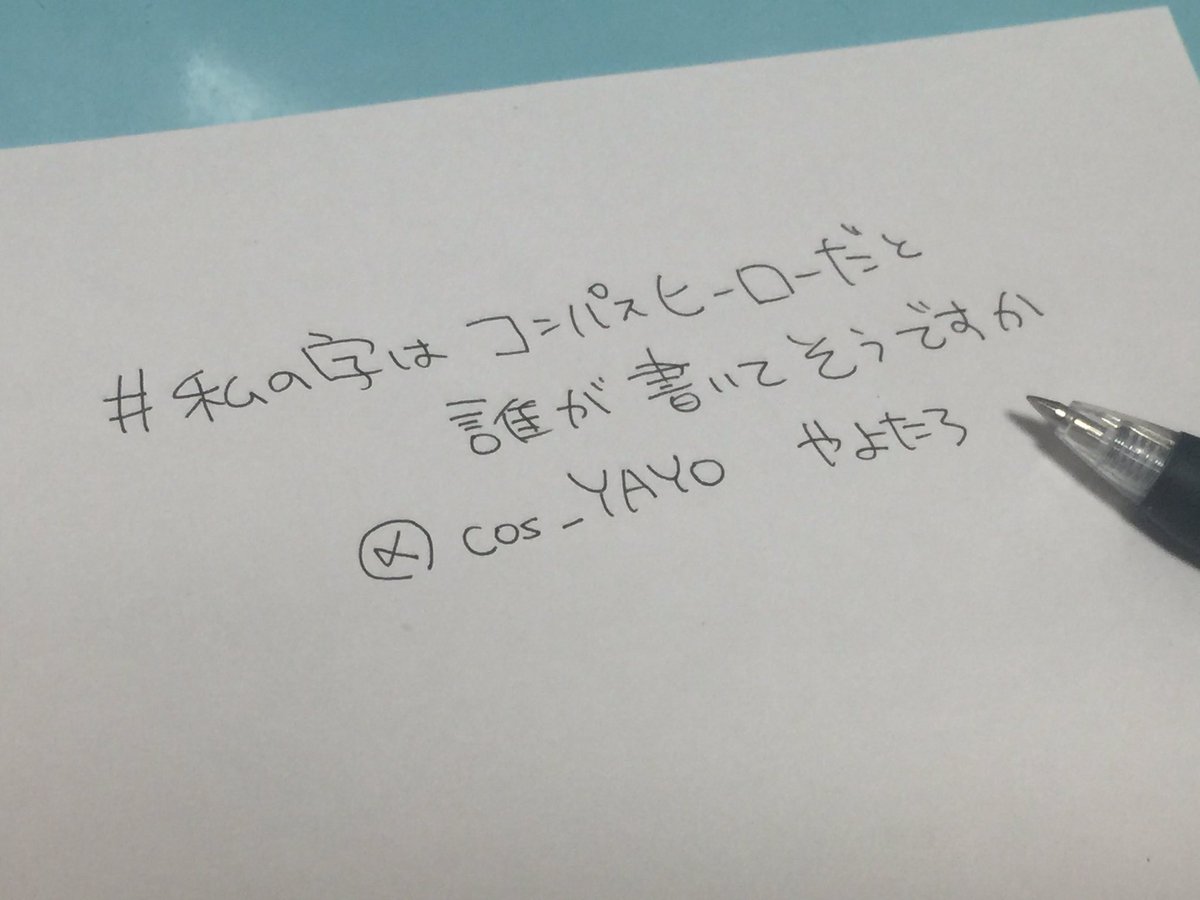 #私の字はコンパスヒーローだと
誰が書いてそうですか
@cos_YAYO やよたろ